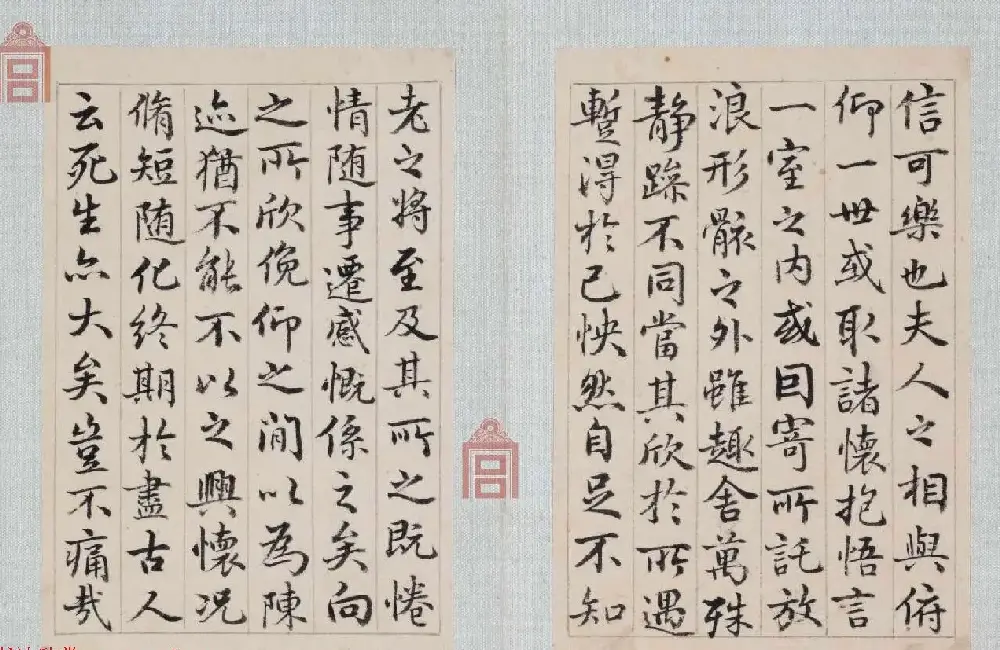 信可樂也夫人之相與俯
仰一世或取諸懷抱悟言
一室之内或因寄所託放
浪形骸之外雖趣舍萬殊
静躁不同當其欣於所遇
蹔得於己怏然自足不知
老之將至及其所之既惓
情随事遷感慨係之矣向
之所欣俛仰之閒以為陳
迹猶不能不以之興懷况
脩短随化終期於盡古人
云死生亦大矣豈不痛哉